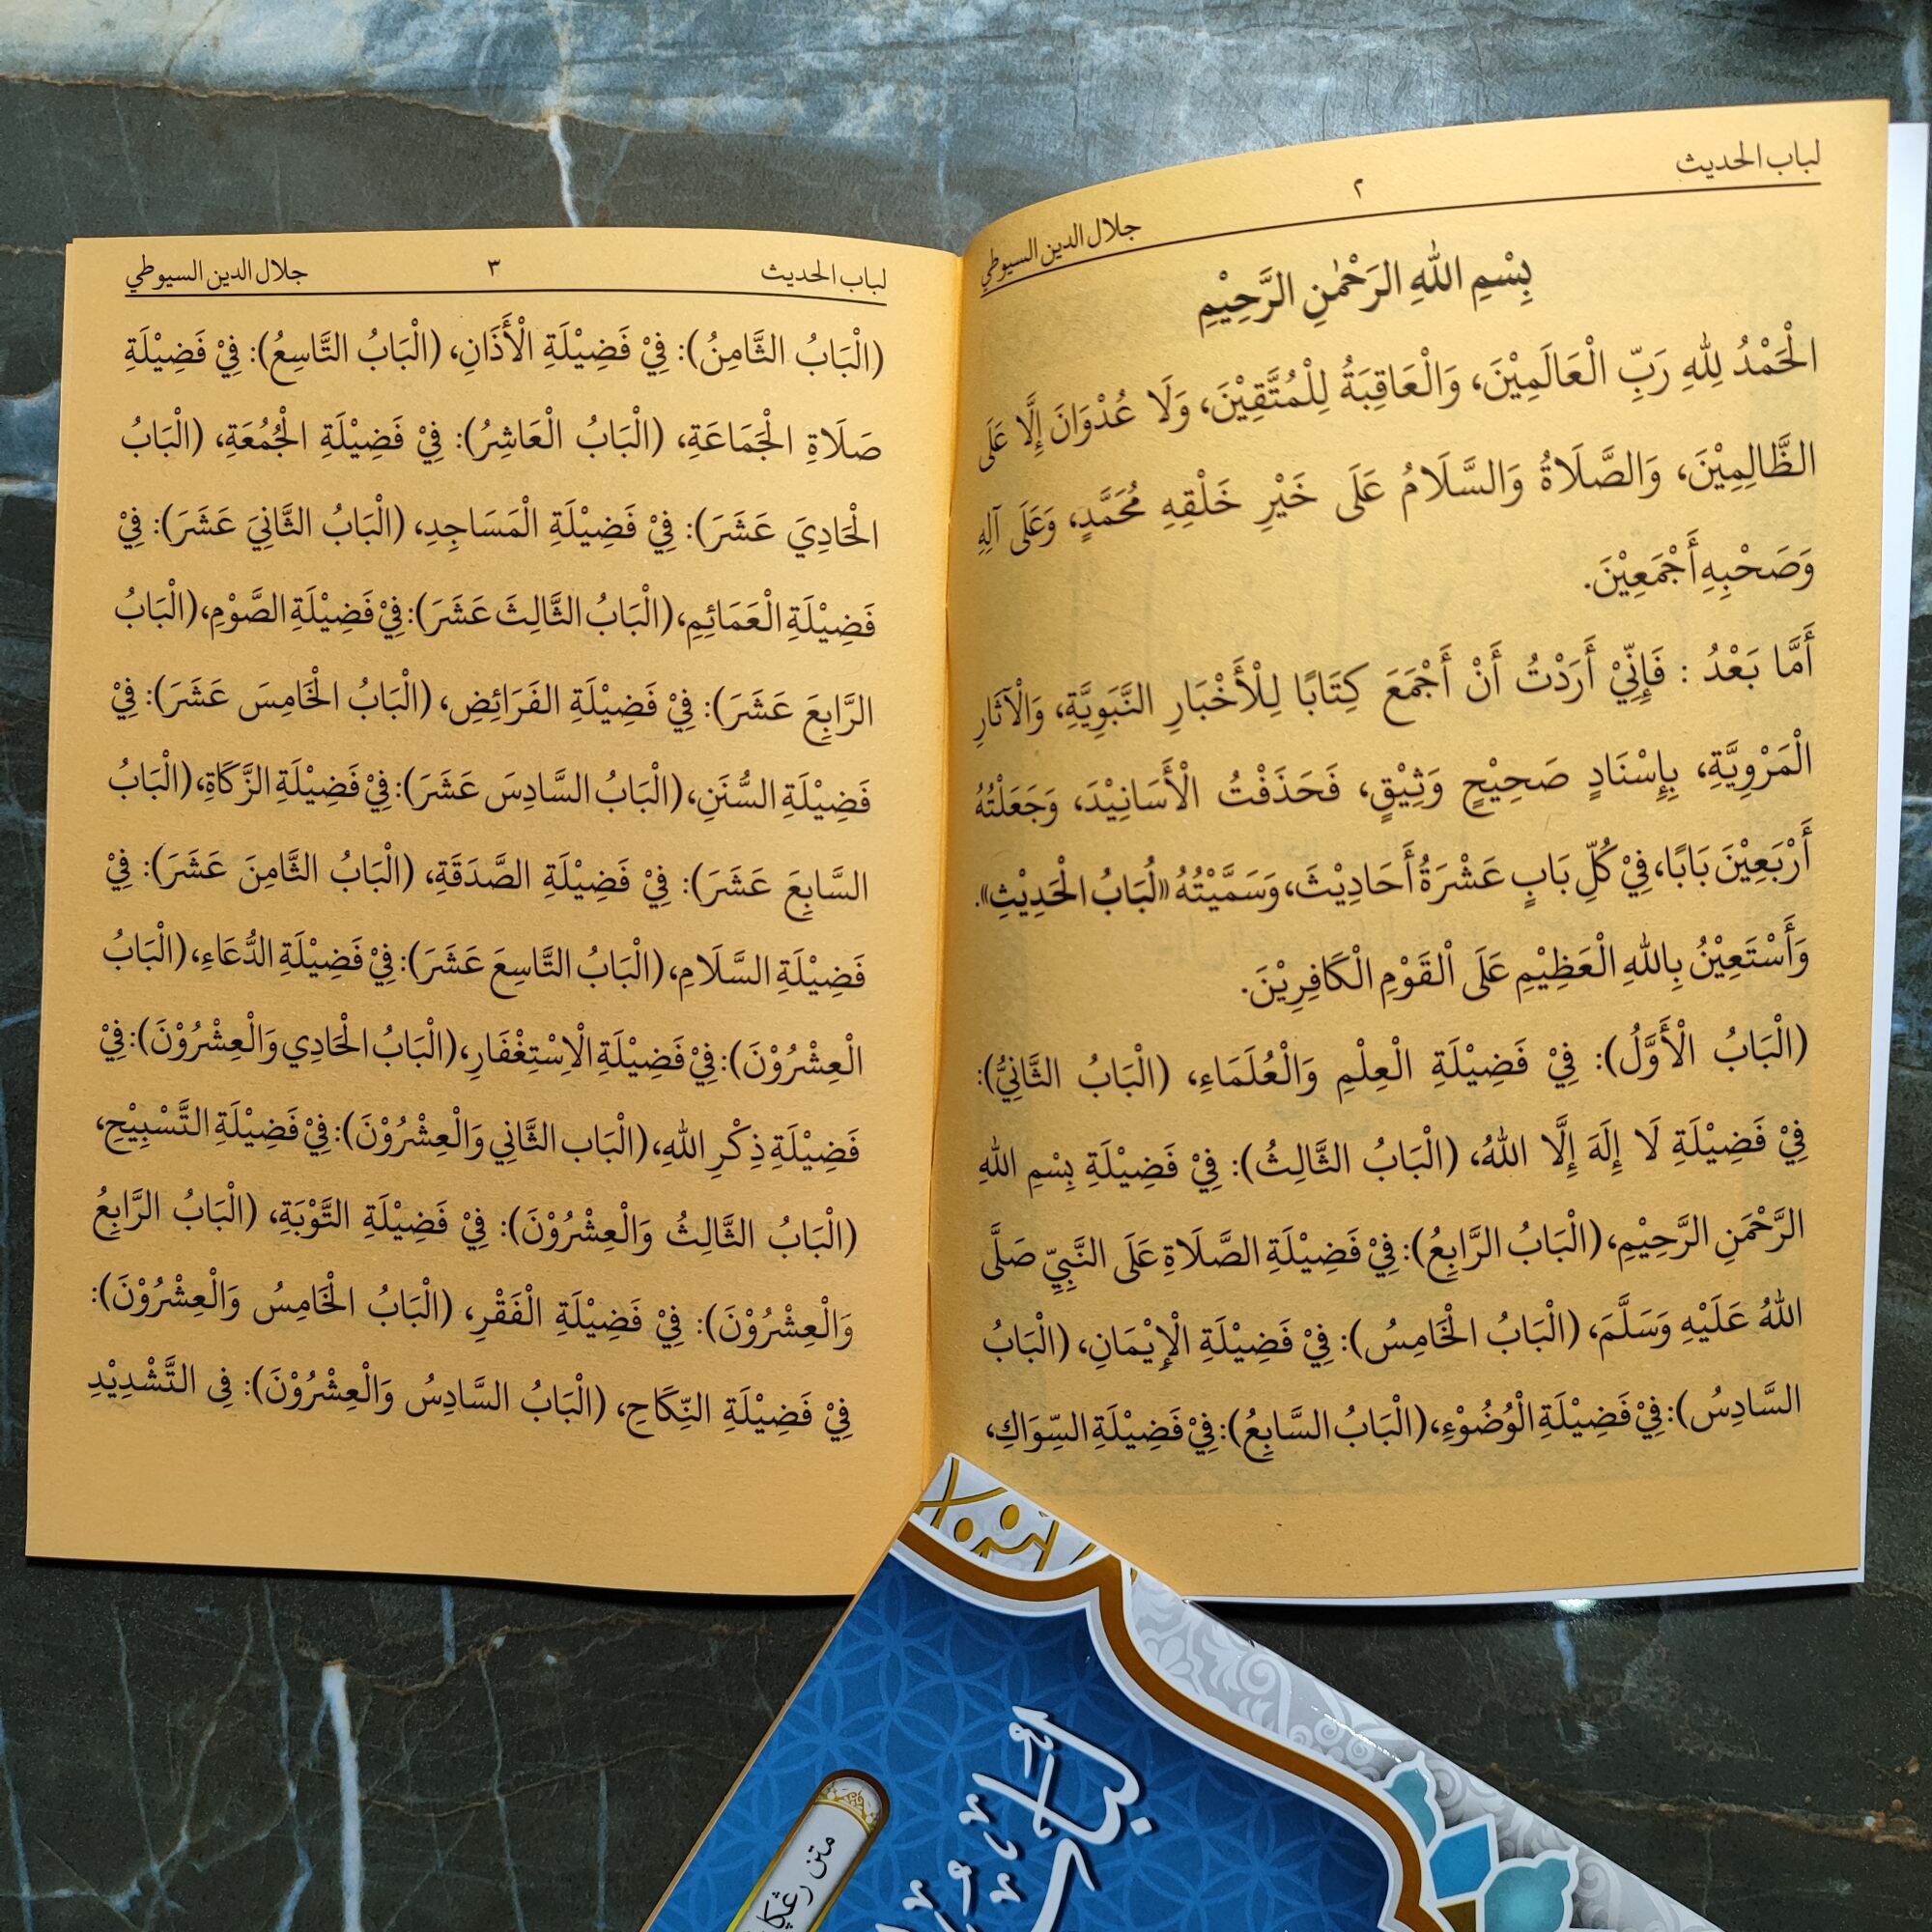 لباب الحديث
٢
جلال الدين السيوطي
بِسْمِ اللهِ الرَحْمٰنِ الرَّحِيْمِ
الْحَمْدُ لِلهِ رَبِّ الْعَالَمِيْنَ، وَالْعَاقِبَةُ لِلْمُتَّقِيْنَ، وَلَا عُدْوَانَ إِلَّا عَلَى
الظَّالِمِيْنَ، وَالصَّلَاةُ وَالسَّلَامُ عَلَى خَيْرِ خَلْقِهِ مُحَمَّدٍ، وَعَلَى آلِهِ
وَصَحْبِهِ أَجْمَعِيْنَ.
أَمَّا بَعْدُ : فَإِنِّيْ أَرَدْتُ أَنْ أَجْمَعَ كِتَابًا لِلْأَخْبَارِ النَّبَوِيَّةِ، وَالْآثَارِ
الْمَرْوِيَّةِ، بِإِسْنَادٍ صَحِيْحٍ وَثِيْقٍ، فَحَذَفْتُ الْأَسَانِيْدَ، وَجَعَلْتُهُ
أَرْبَعِيْنَ بَابًا، فِيْ كُلِّ بَابٍ عَشْرَةُ أَحَادِيْثَ، وَسَمَّيْتُهُ «لُبَابُ الْحَدِيْثِ».
وَأَسْتَعِيْنُ بِاللهِ الْعَظِيْمِ عَلَى الْقَوْمِ الْكَافِرِيْنَ.
(الْبَابُ الْأَوَّلُ): فِيْ فَضِيْلَةِ الْعِلْمِ وَالْعُلَمَاءِ، (الْبَابُ الثَّانِيُّ):
فِيْ فَضِيْلَةِ لَا إِلَهَ إِلَّا اللهُ، (الْبَابُ الثَّالِثُ): فِيْ فَضِيْلَةِ بِسْمِ اللهِ
الرَّحْمَنِ الرَّحِيْمِ، (الْبَابُ الرَّابِعُ): فِيْ فَضِيْلَةِ الصَّلَاةِ عَلَى النَّبِيِّ صَلَّى
اللهُ عَلَيْهِ وَسَلَّمَ، (الْبَابُ الْخَامِسُ): فِيْ فَضِيْلَةِ الْإِيْمَانِ، (الْبَابُ
السَّادِسُ): فِيْ فَضِيْلَةِ الْوُضُوْءِ، (الْبَابُ السَّابِعُ): فِيْ فَضِيْلَةِ السِّوَاكِ،
لباب الحديث
٣
جلال الدين السيوطي
(الْبَابُ الثَّامِنُ): فِيْ فَضِيْلَةِ الْأَذَانِ، (الْبَابُ التَّاسِعُ): فِيْ فَضِيْلَةِ
صَلَاةِ الْجَمَاعَةِ، (الْبَابُ الْعَاشِرُ): فِيْ فَضِيْلَةِ الْجُمُعَةِ، (الْبَابُ
الْحَادِيَ عَشَرَ): فِيْ فَضِيْلَةِ الْمَسَاجِدِ، (الْبَابُ الثَّانِيَ عَشَرَ): فِيْ
فَضِيْلَةِ الْعَمَائِمِ، (الْبَابُ الثَّالِثَ عَشَرَ): فِيْ فَضِيْلَةِ الصَّوْمِ، (الْبَابُ
الرَّابِعَ عَشَرَ): فِيْ فَضِيْلَةِ الفَرَائِضِ، (الْبَابُ الْخَامِسَ عَشَرَ): فِيْ
فَضِيْلَةِ السُّنَنِ، (الْبَابُ السَّادِسَ عَشَرَ): فِيْ فَضِيْلَةِ الزَّكَاةِ، (الْبَابُ
السَّابِعَ عَشَرَ): فِيْ فَضِيْلَةِ الصَّدَقَةِ، (الْبَابُ الثَّامِنَ عَشَرَ): فِيْ
فَضِيْلَةِ السَّلَامِ، (الْبَابُ التَّاسِعَ عَشَرَ): فِيْ فَضِيْلَةِ الدُّعَاءِ، (الْبَابُ
الْعِشْرُوْنَ): فِيْ فَضِيْلَةِ الْاِسْتِغْفَارِ، (الْبَابُ الْحَادِي وَالْعِشْرُوْنَ): فِيْ
فَضِيْلَةِ ذِكْرِ اللهِ، (الْبَاب الثَّانِي وَالْعِشْرُوْنَ): فِيْ فَضِيْلَةِ التَّسْبِيْحِ،
(الْبَابُ الثَّالِثُ وَالْعِشْرُوْنَ): فِيْ فَضِيْلَةِ التَّوْبَةِ، (الْبَابُ الرَّابِعُ
وَالْعِشْرُوْنَ): فِيْ فَضِيْلَةِ الْفَقْرِ، (الْبَابُ الْخَامِسُ وَالْعِشْرُوْنَ):
فِيْ فَضِيْلَةِ النِّكَاحِ، (الْبَابُ السَّادِسُ وَالْعِشْرُوْنَ): فِى التَّشْدِيْدِ
متن